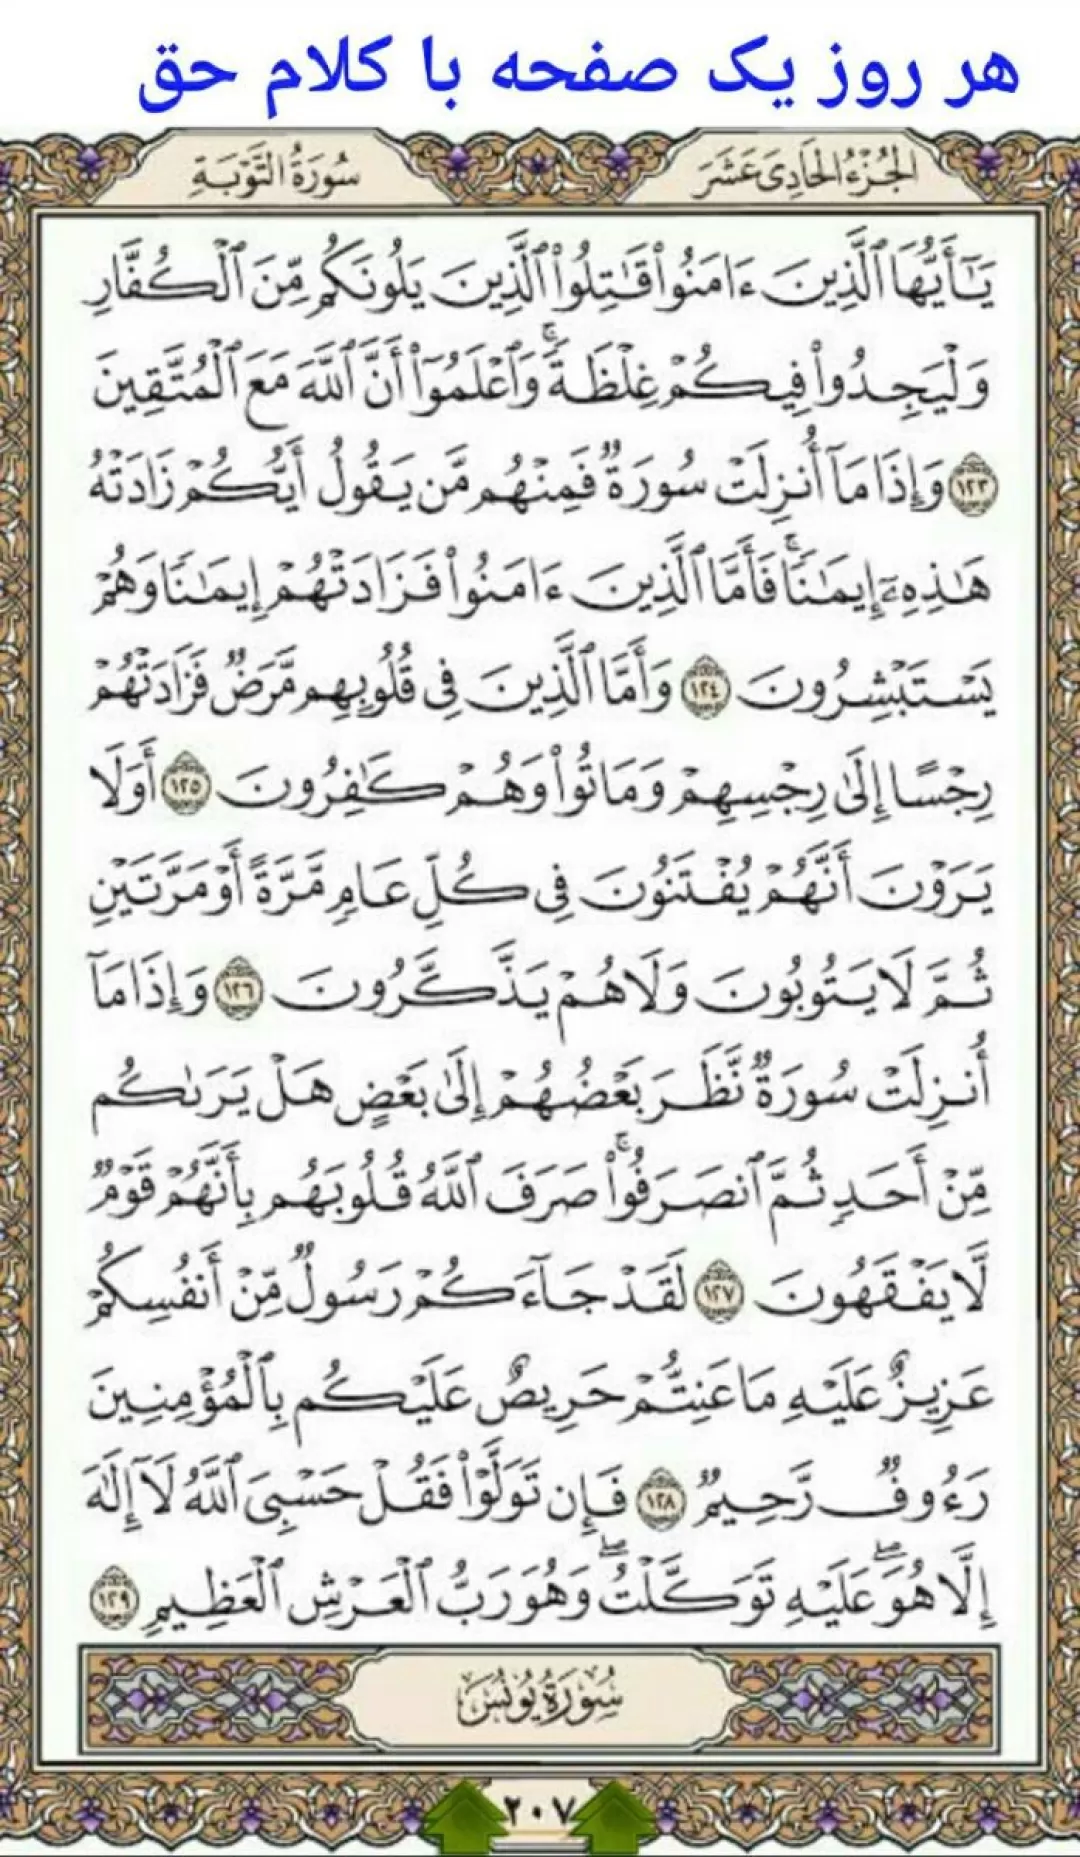 هر روز یک صفحه با کلام حق
الجُزْءُ الحَادِي عَشَرَ
سُورَةُ التَّوْبَةِ
يَٰٓأَيُّهَا ٱلَّذِينَ ءَامَنُوا۟ قَٰتِلُوا۟ ٱلَّذِينَ يَلُونَكُم مِّنَ ٱلْكُفَّارِ
وَلْيَجِدُوا۟ فِيكُمْ غِلْظَةً ۚ وَٱعْلَمُوٓا۟ أَنَّ ٱللَّهَ مَعَ ٱلْمُتَّقِينَ
١٢٣ وَإِذَا مَآ أُنزِلَتْ سُورَةٌ فَمِنْهُم مَّن يَقُولُ أَيُّكُمْ زَادَتْهُ
هَٰذِهِۦٓ إِيمَٰنًا ۚ فَأَمَّا ٱلَّذِينَ ءَامَنُوا۟ فَزَادَتْهُمْ إِيمَٰنًا وَهُمْ
يَسْتَبْشِرُونَ ١٢٤ وَأَمَّا ٱلَّذِينَ فِى قُلُوبِهِم مَّرَضٌ فَزَادَتْهُمْ
رِجْسًا إِلَىٰ رِجْسِهِمْ وَمَاتُوا۟ وَهُمْ كَٰفِرُونَ ١٢٥ أَوَلَا
يَرَوْنَ أَنَّهُمْ يُفْتَنُونَ فِى كُلِّ عَامٍ مَّرَّةً أَوْ مَرَّتَيْنِ
ثُمَّ لَا يَتُوبُونَ وَلَا هُمْ يَذَّكَّرُونَ ١٢٦ وَإِذَا مَآ
أُنزِلَتْ سُورَةٌ نَّظَرَ بَعْضُهُمْ إِلَىٰ بَعْضٍ هَلْ يَرَىٰكُم
مِّنْ أَحَدٍ ثُمَّ ٱنصَرَفُوا۟ ۚ صَرَفَ ٱللَّهُ قُلُوبَهُم بِأَنَّهُمْ قَوْمٌ
لَّا يَفْقَهُونَ ١٢٧ لَقَدْ جَآءَكُمْ رَسُولٌ مِّنْ أَنفُسِكُمْ
عَزِيزٌ عَلَيْهِ مَا عَنِتُّمْ حَرِيصٌ عَلَيْكُم بِٱلْمُؤْمِنِينَ
رَءُوفٌ رَّحِيمٌ ١٢٨ فَإِن تَوَلَّوْا۟ فَقُلْ حَسْبِىَ ٱللَّهُ لَآ إِلَٰهَ
إِلَّا هُوَ ۖ عَلَيْهِ تَوَكَّلْتُ ۖ وَهُوَ رَبُّ ٱلْعَرْشِ ٱلْعَظِيمِ ١٢٩
سُورَةُ يُونُسَ
٢٠٧